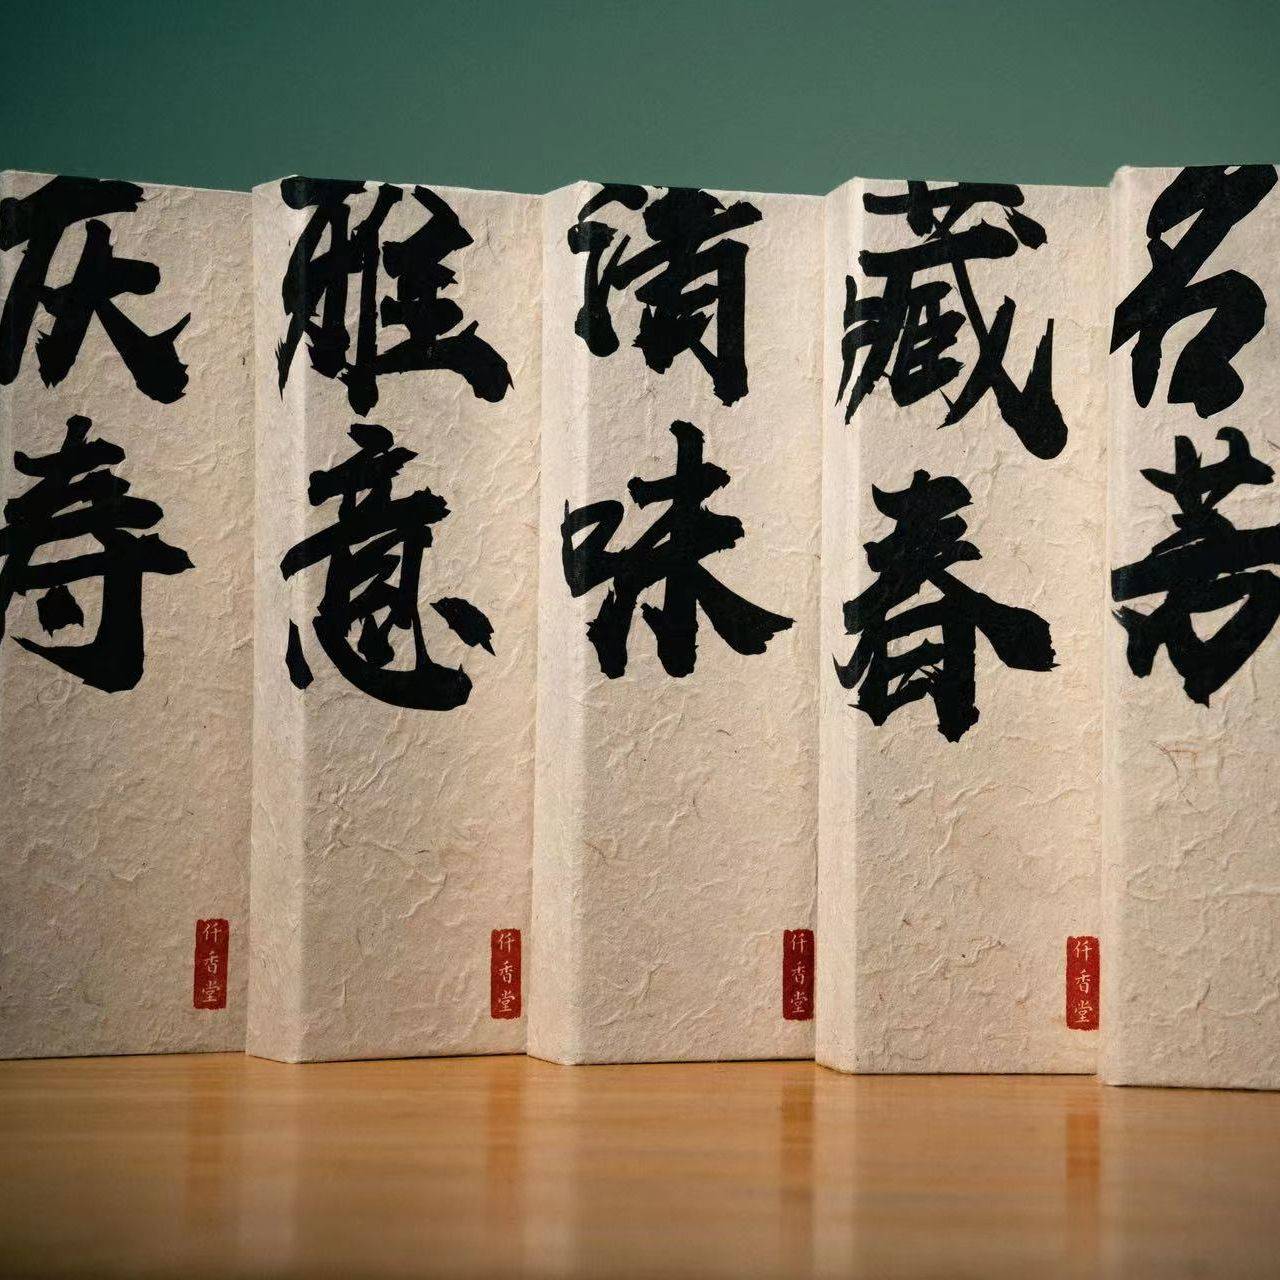 庆寿
雅意
清味
藏春
名芳
仟香堂
仟香堂
仟香堂
仟香堂